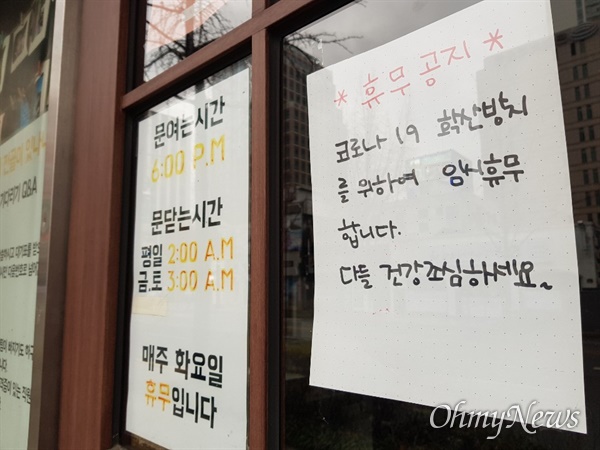 문여는시간
6:00 P.M
문닫는시간
평일 2:00 A.M
금,토 3:00 A.M
매주 화요일
휴무입니다
* 휴무공지 *
코로나 19 확산방지
를 위하여 임시휴무
합니다.
다들 건강조심하세요~
기다리기! Q&A
OhmyNews